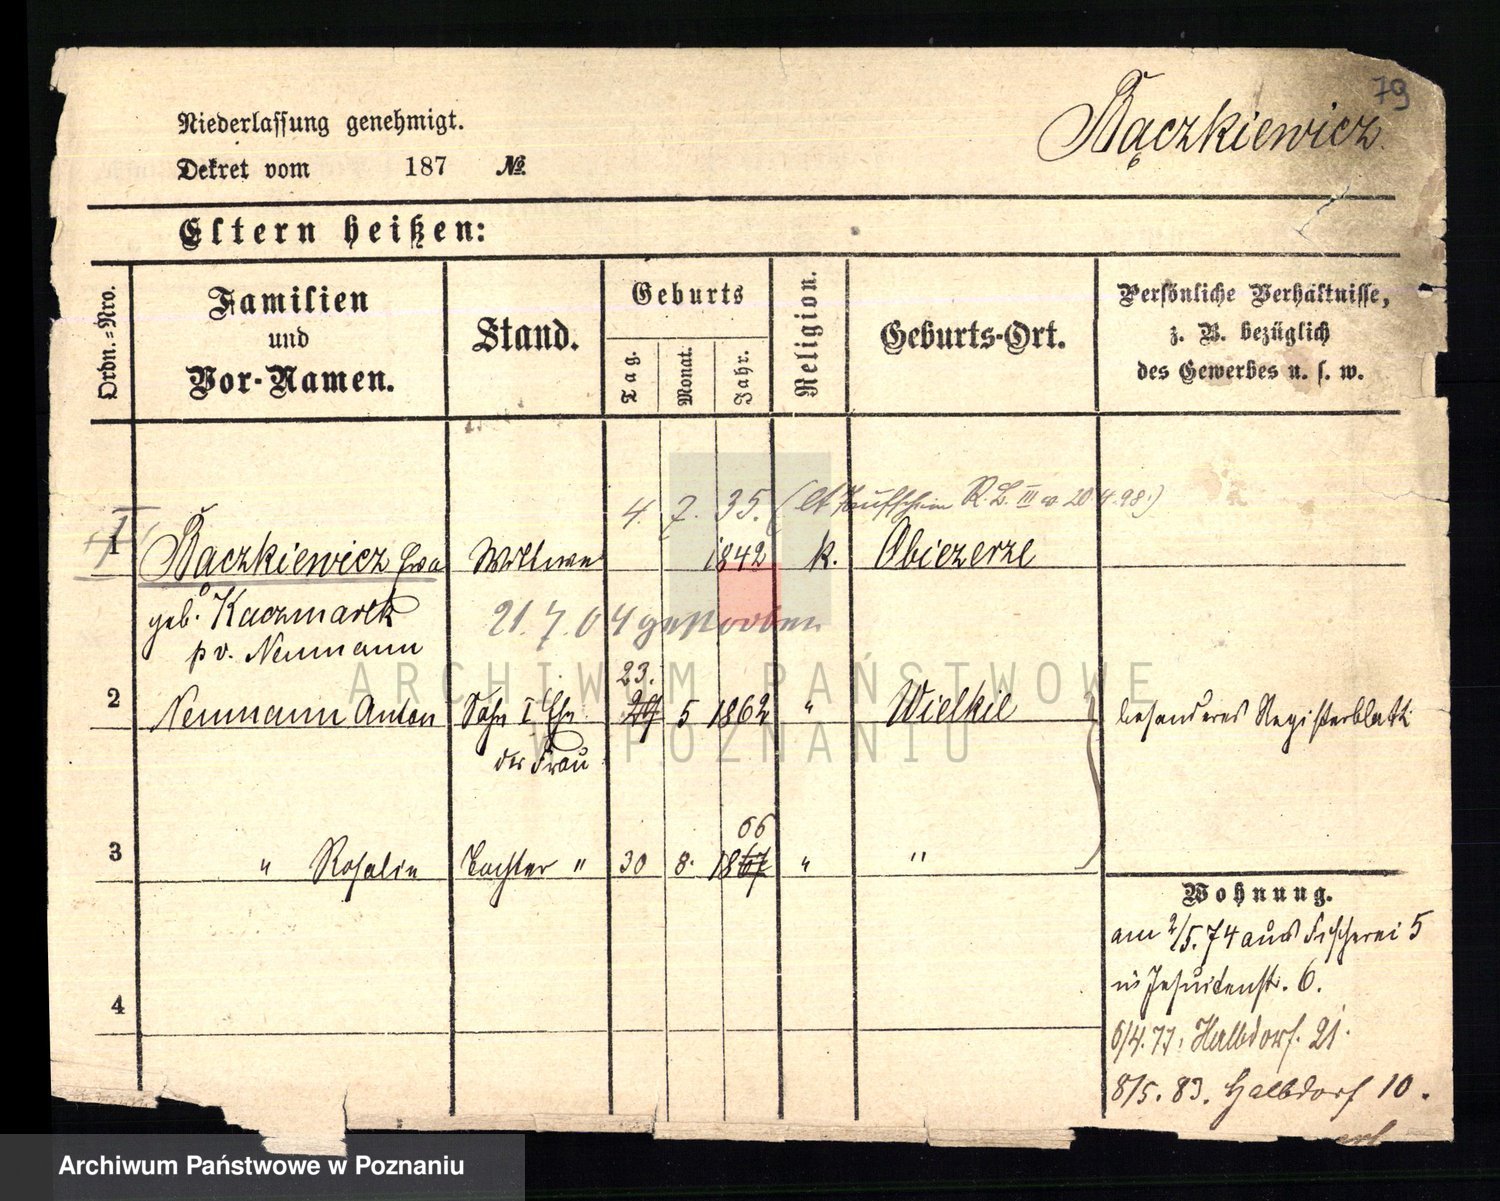 79
Bączkiewicz.
Niederlassung genehmigt.
Dekret vom 187 №
Eltern heißen:
Ordn.-Nro.
Familien
und
Vor-Namen.
Stand.
Geburts
Tag.
Monat.
Jahr.
Religion.
Geburts-Ort.
Persönliche Verhältnisse,
z. B. bezüglich
des Gewerbes u. s. w.
4. 7. 35. (lt Taufschein R. L. III 20 4. 98.)
1 Bączkiewicz Eva Wittwe 1842 k. Obiezerze
geb. Kaczmarek
pv. Neumann
21. 7. 04 gestorben
23.
2 Neumann Anton Sohn I Ehe 29 5 1862 " Wielkie besonderes Registerblatt
der Frau
66
3 " Rosalie Tochter " 30 8. 1867 " "
4
Wohnung.
am 2/5. 74 aus Fischerei 5
in Jesuitenstr. 6.
6/4. 77. Halbdorf. 21.
8/5. 83. Halbdorf 10.
ARCHIWUM PAŃSTWOWE
W POZNANIU
Archiwum Państwowe w Poznaniu